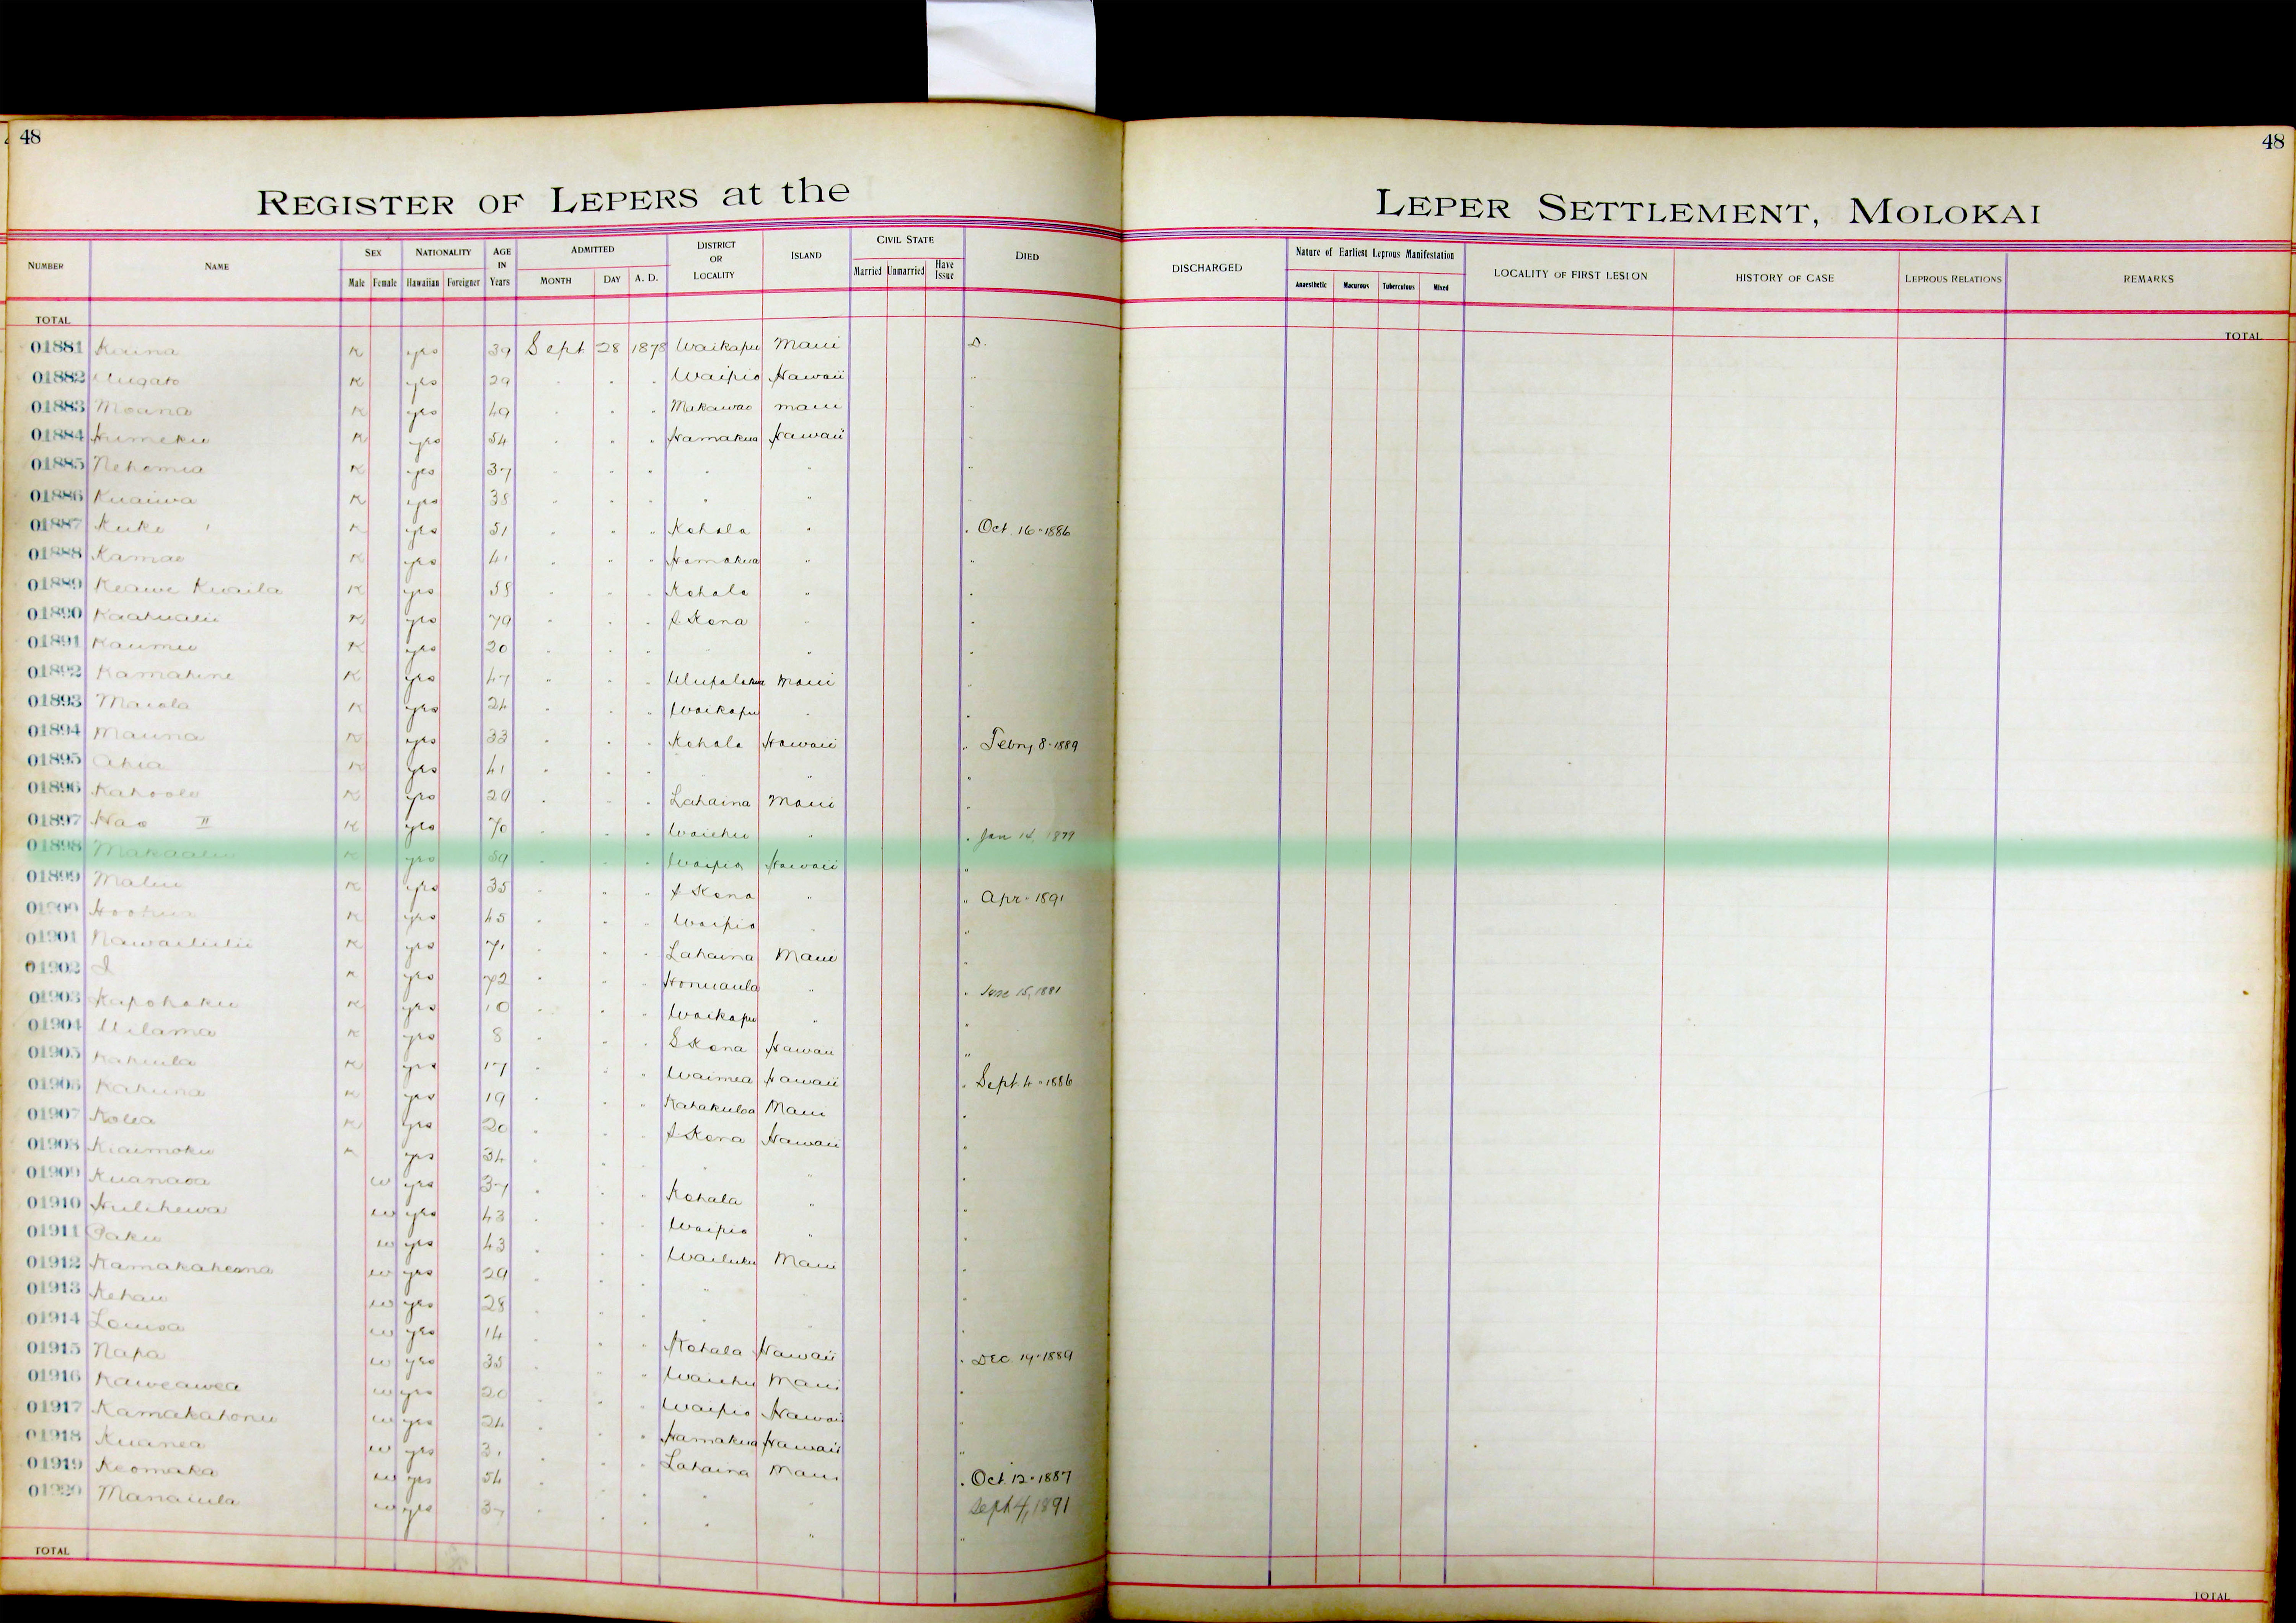 48
48
REGISTER OF LEPERS at the
LEPER SETTLEMENT, MOLOKAI
NUMBER NAME SEX Male Female NATIONALITY Hawaiian Foreigner AGE IN Years ADMITTED MONTH DAY A. D. DISTRICT OR LOCALITY ISLAND CIVIL STATE Married Unmarried Have Issue DIED
DISCHARGED Nature of Earliest Leprous Manifestation Anaesthetic Macurous Tuberculous Mixed LOCALITY OF FIRST LESION HISTORY OF CASE LEPROUS RELATIONS REMARKS
TOTAL
TOTAL
01881 K yes 39 Sept 28 1878 Waikapu Maui D.
01882 K yes 29 Waipio Hawaii
01883 Moana K yes 49 Makawao Maui
01884 Humeku K yes 54 Hamakua Hawaii
01885 Nehemia K yes 37 " "
01886 Kuaiwa K yes 38 " "
01887 Kuke K yes 51 Kohala " " Oct. 16 - 1886
01888 Kamae K yes 41 Hamakua "
01889 Keawe Kuaila K yes 58 Kohala "
01890 Kaahualii K yes 79 Kona "
01891 Kaumu K yes 20 " "
01892 Kamahine K yes 47 Ulupalakua Maui
01893 Maiola K yes 24 Waikapu "
01894 Mauna K yes 33 Kohala Hawaii " Febry 8 - 1889
01895 Ahia K yes 41 "
01896 Kahoole K yes 29 Lahaina Maui
01897 Hao II K yes 70 Waiehu " " Jan 14, 1879
01898 Makaalu K yes 59 Waipio Hawaii "
01899 Malu K yes 35 Kona " " Apr - 1891
01900 Hoohua K yes 45 Waipio "
01901 Nawailiilii K yes 71 Lahaina Maui
01902 I K yes 72 Honuaula " " June 15, 1881
01903 Kapohaku K yes 10 Waikapu "
01904 Uilama K yes 8 S Kona Hawaii "
01905 Kahiula K yes 17 Waimea Hawaii " Sept. 4 - 1886
01906 Kahuna K yes 19 Kahakuloa Maui
01907 Kolea K yes 20 Kona Hawaii
01908 Kiaimoku K yes 34 " "
01909 Kuanaoa w yes 37 Kohala "
01910 Hulihewa w yes 43 Waipio "
01911 Paku w yes 43 Wailuku Maui
01912 w yes 29 "
01913 Kehau w yes 28 "
01914 Louisa w yes 14 Kohala Hawaii " Dec. 19 - 1889
01915 Napa w yes 35 Waiehu Maui
01916 Kaweawea w yes 20 Waipio Hawaii
01917 Kamakahonu w yes 24 Hamakua Hawaii "
01918 Kuanea w yes 31 Lahaina Maui " Oct. 12 - 1887
01919 Keomaka w yes 54 " " Sept 4, 1891
01920 Manaiula w yes 37 " " "
TOTAL
TOTAL